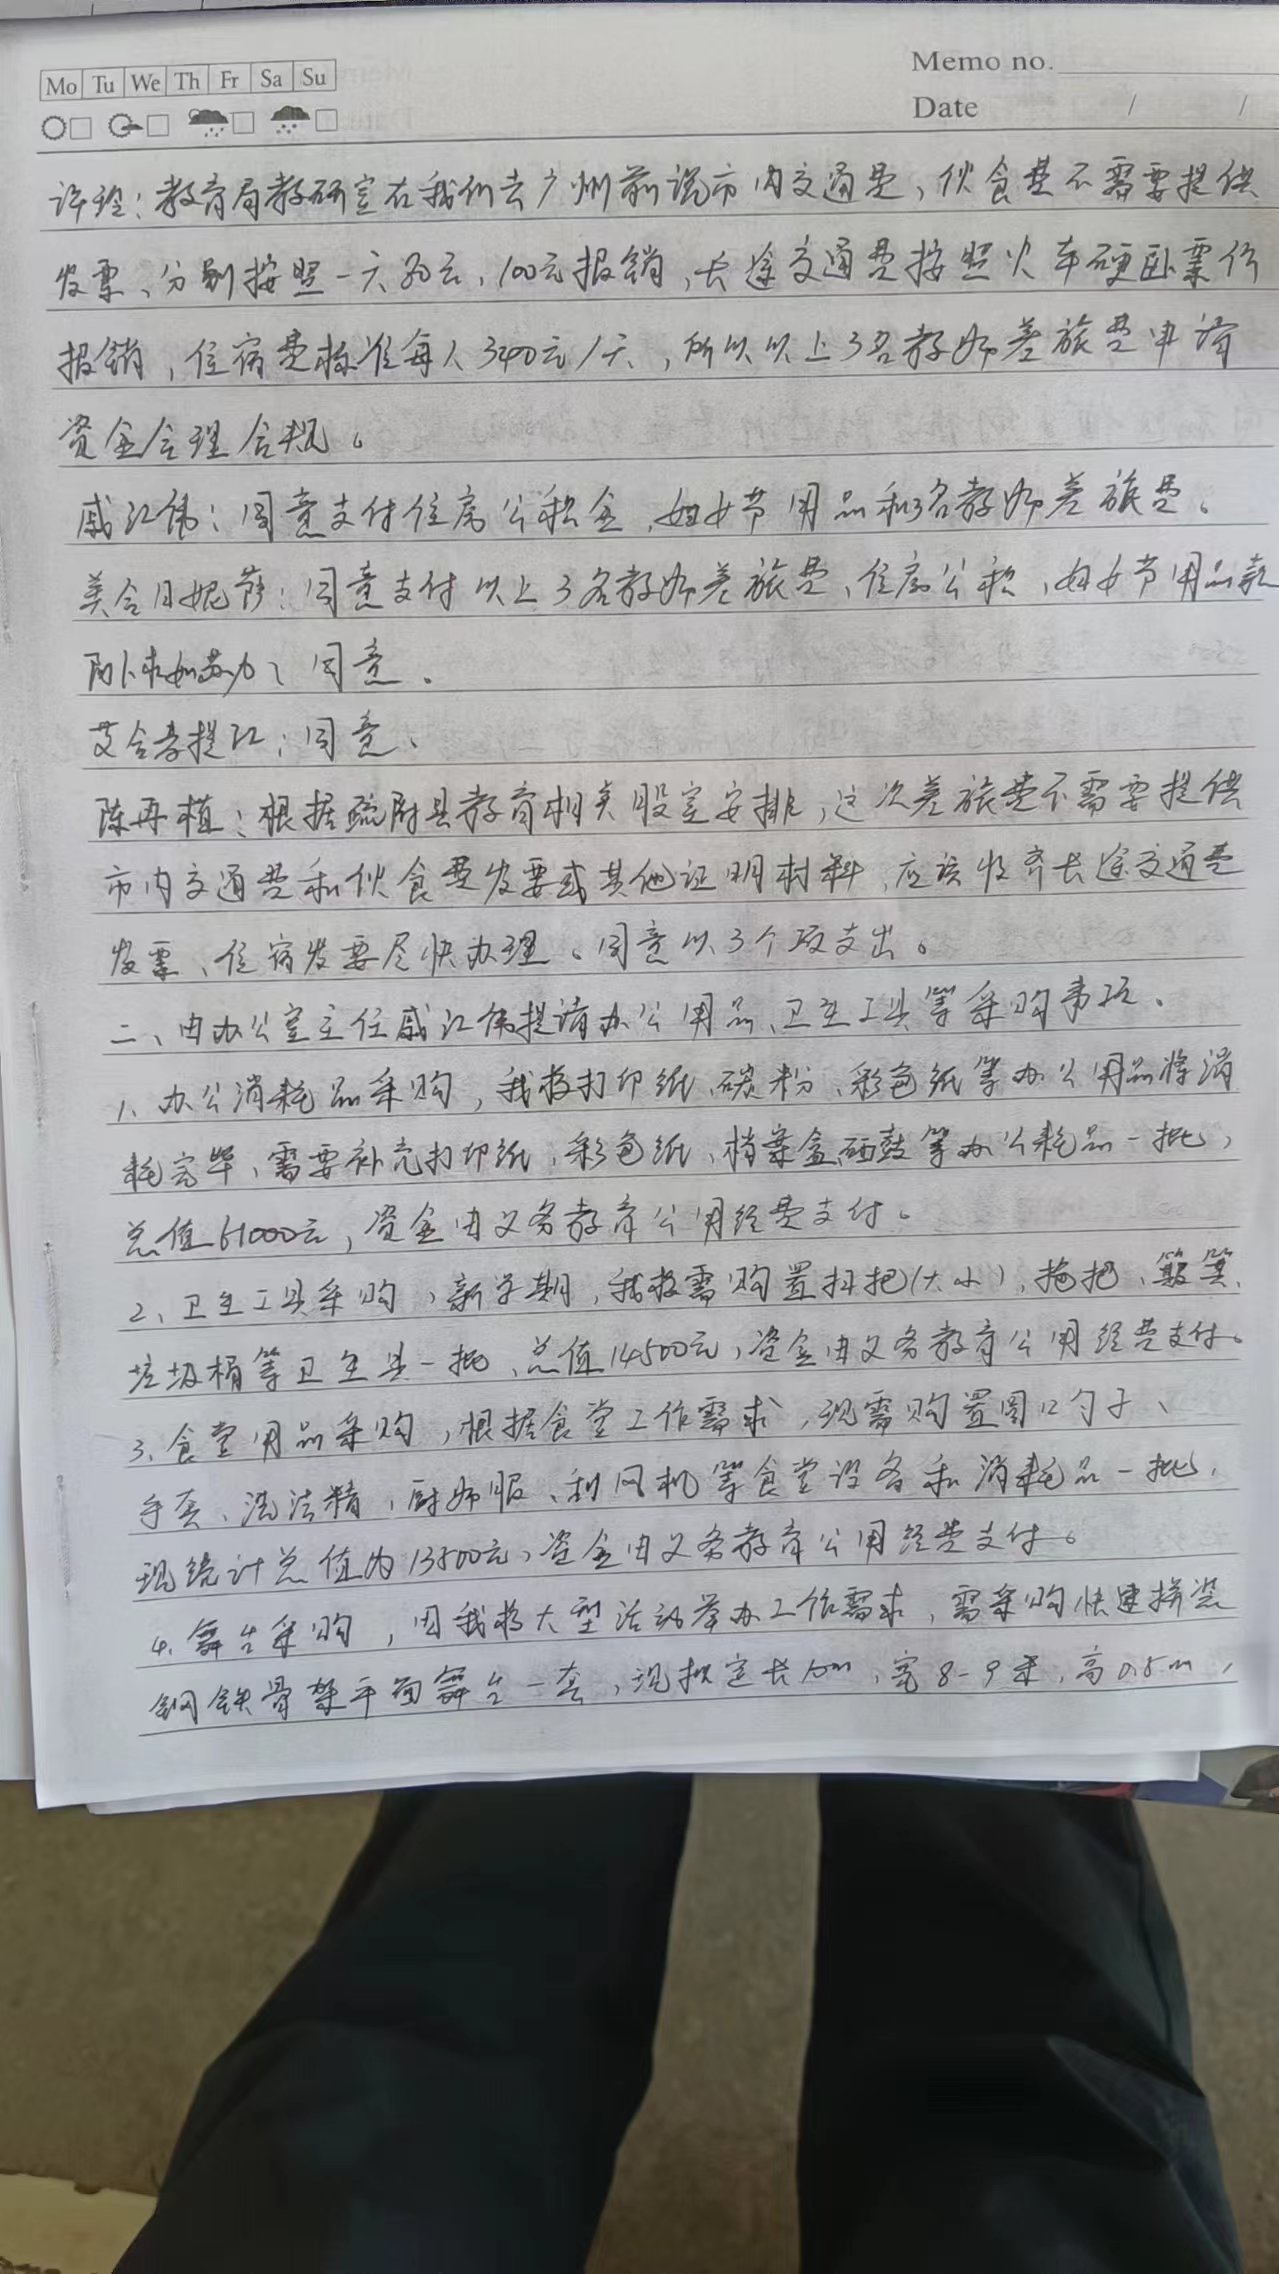 Mo Tu We Th Fr Sa Su
Memo no.
Date / /
许玲：教育局教研室在我们去广州前说市内交通费，伙食费不需要提供
发票、分别按照一天80元、100元报销，长途交通费按照火车硬卧票价
报销，住宿费标准每人340元/天，所以以上3名教师差旅费申请
资金合理合规。
戚江伟：同意支付住房公积金、妇女节用品和3名教师差旅费。
美合日妮萨：同意支付以上3名教师差旅费、住房公积、妇女节用品款
同意。
艾合麦提江：同意、
陈再植：根据疏附县教育相关股室安排，这次差旅费不需要提供
市内交通费和伙食费发要或其他证明材料、应该收齐长途交通费
发票、住宿发要尽快办理。同意以3个项支出。
二、由办公室主任戚江伟提请办公用品、卫生工具等采购事项、
1、办公消耗品采购，我校打印纸、碳粉、彩色纸等办公用品将消
耗完毕、需要补充打印纸、彩色纸、档案盒、硒鼓等办公耗品一批，
总值61000元，资金由义务教育公用经费支付。
2、卫生工具采购，新学期，我校需购置扫把(大、小)，拖把、簸箕、
垃圾桶等卫生具一批、总值14500元，资金由义务教育公用经费支付。
3、食堂用品采购，根据食堂工作需求，现需购置圆口勺子、
手套、洗洁精，厨师服、刮风机等食堂设备和消耗品一批，
现统计总值为13500元，资金由义务教育公用经费支付。
4、舞台采购，因我校大型活动举办工作需求，需采购快速拼装
钢铁骨架平面舞台一套，现拟定长10m，宽8-9米，高0.8m，